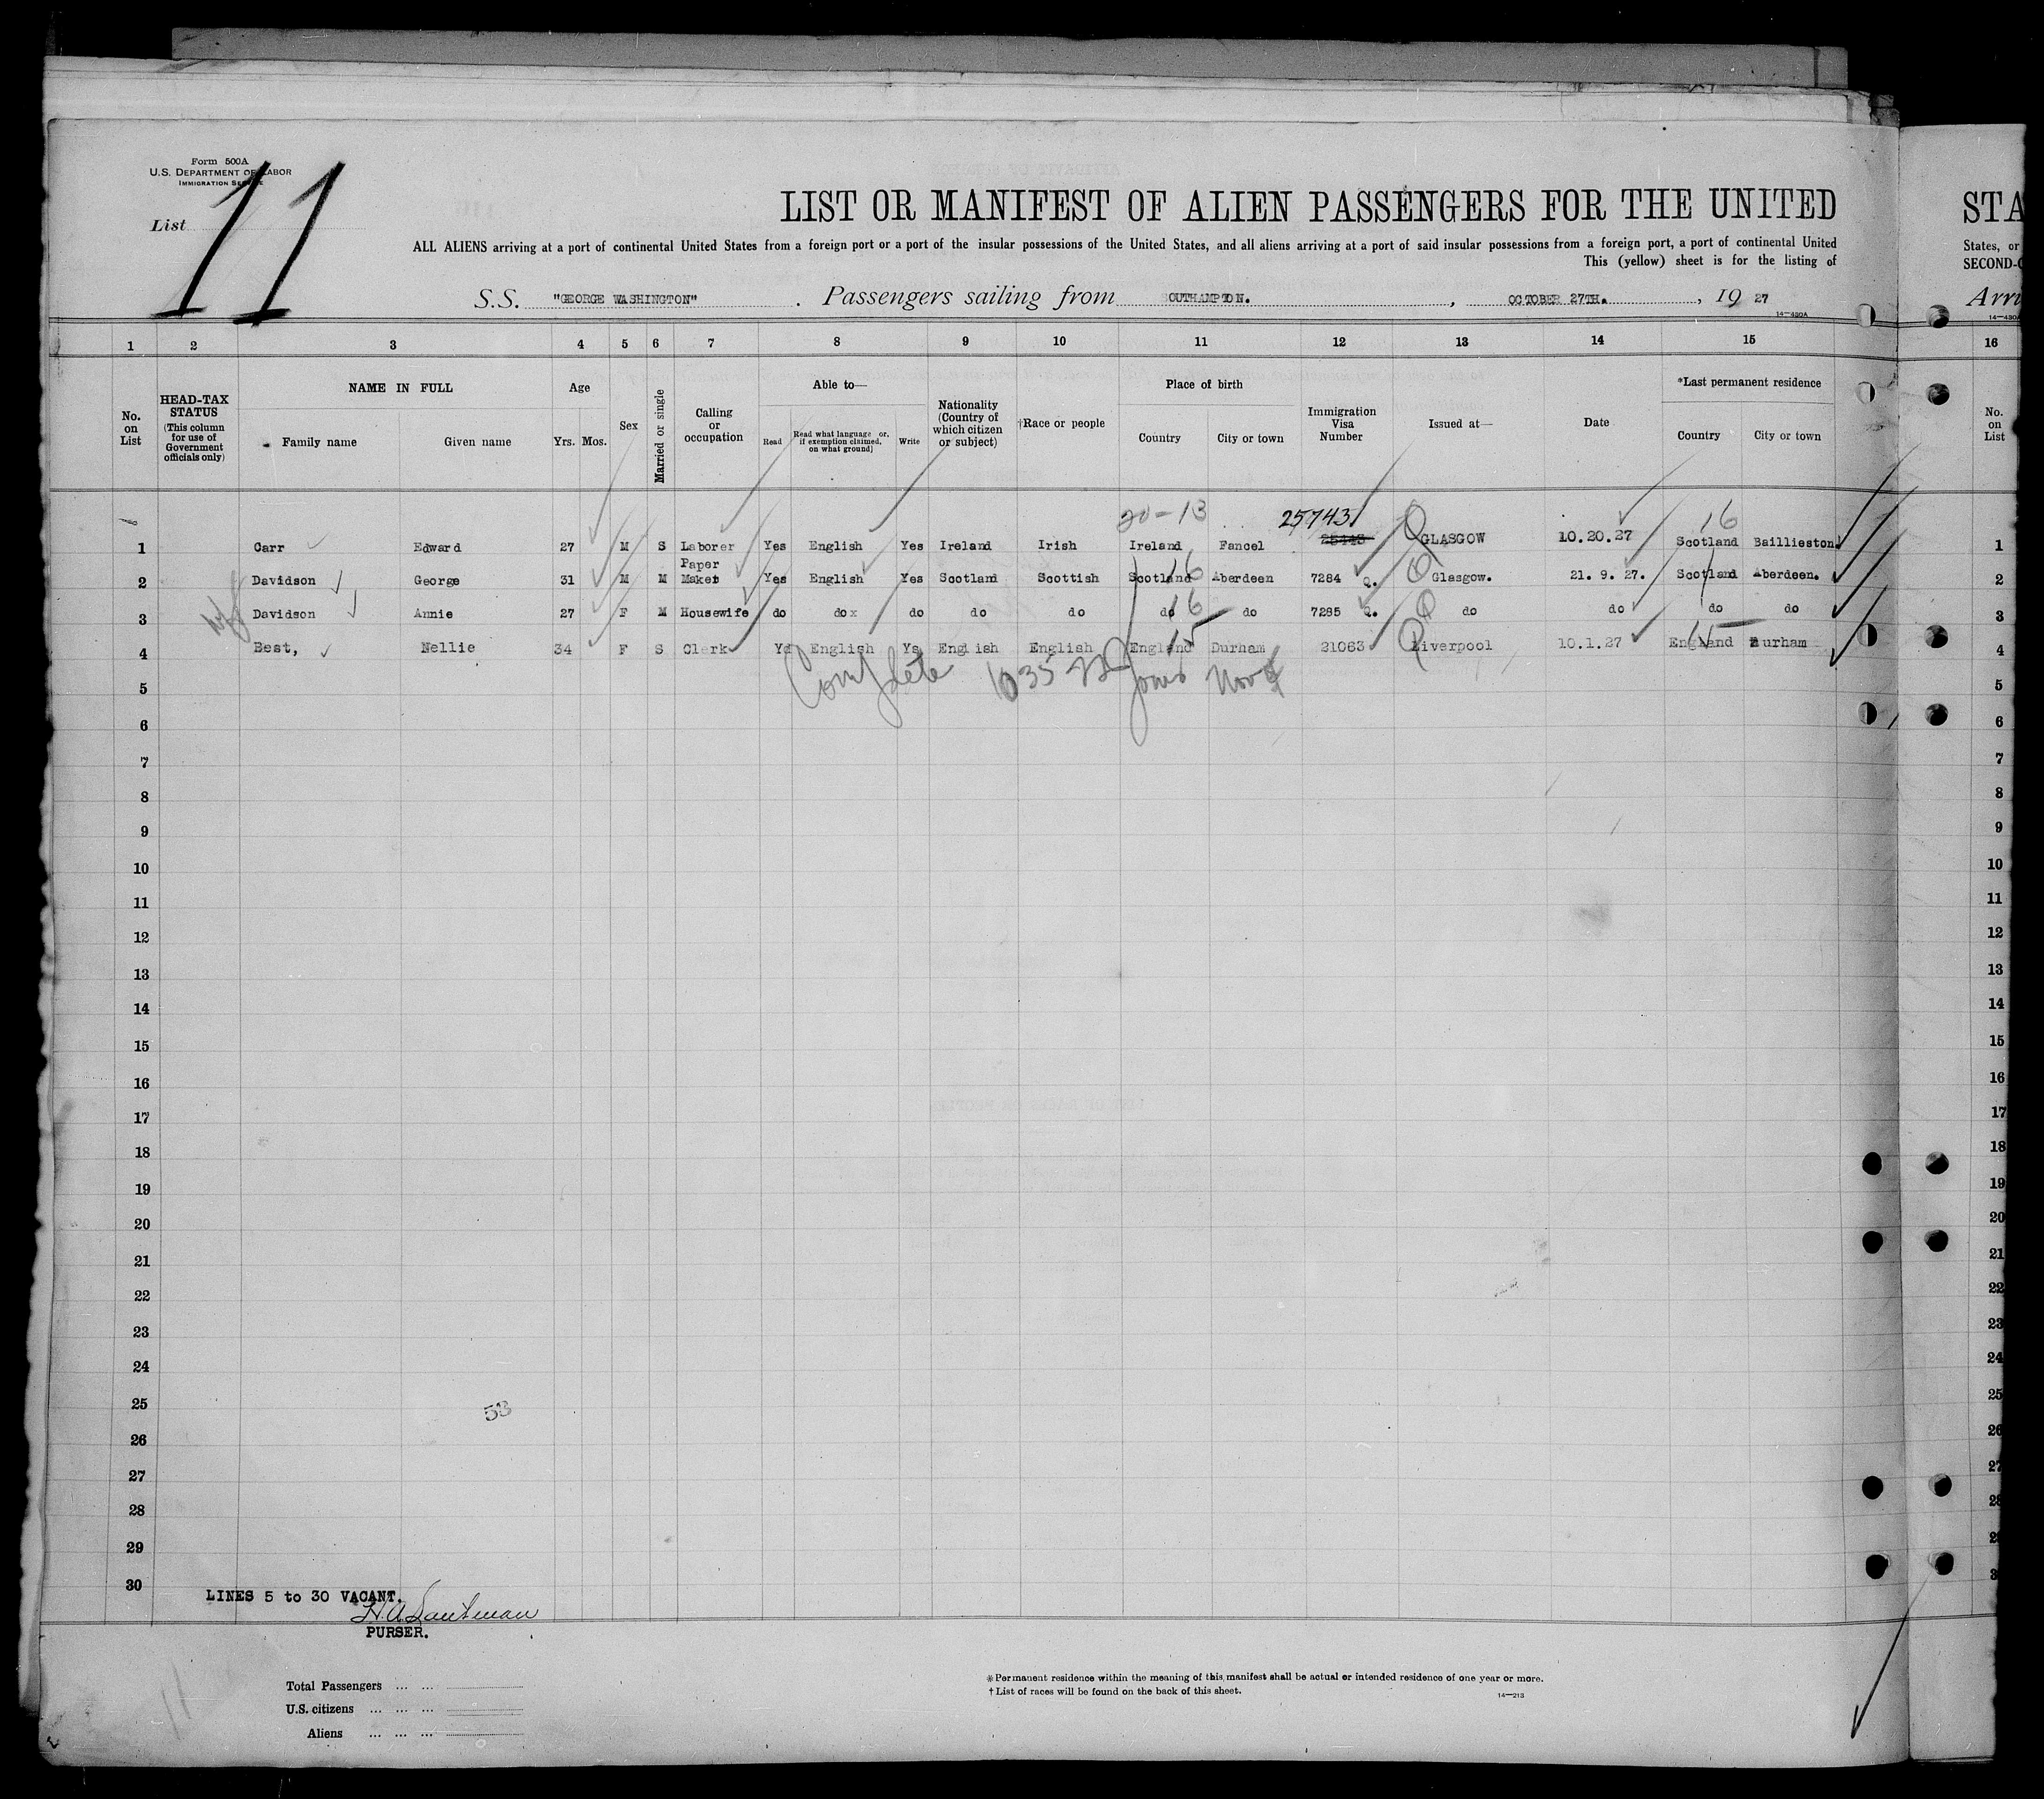 Form 500A
U.S. DEPARTMENT OF LABOR
IMMIGRATION SERVICE
List 11
LIST OR MANIFEST OF ALIEN PASSENGERS FOR THE UNITED
ALL ALIENS arriving at a port of continental United States from a foreign port or a port of the insular possessions of the United States, and all aliens arriving at a port of said insular possessions from a foreign port, a port of continental United
This (yellow) sheet is for the listing of
S.S. "GEORGE WASHINGTON" . Passengers sailing from SOUTHAMPTON. , OCTOBER 27TH. , 19 27
14—430A
STA
States, or
SECOND-C
Arri
14—430A
1 2 3 4 5 6 7 8 9 10 11 12 13 14 15 16
No. on List
HEAD-TAX STATUS (This column for use of Government officials only)
NAME IN FULL
Family name Given name
Age
Yrs. Mos.
Sex
Married or single
Calling or occupation
Able to—
Read Read what language or, if exemption claimed, on what ground) Write
Nationality (Country of which citizen or subject)
†Race or people
Place of birth
Country City or town
Immigration Visa Number
Issued at—
Date
*Last permanent residence
Country City or town
No. on List
20-13 25743 16
1 Carr Edward 27 M S Laborer Yes English Yes Ireland Irish Ireland Fancel GLASGOW 10.20.27 Scotland Baillieston 1
2 Davidson George 31 M M Paper Maker Yes English Yes Scotland Scottish Scotland 16 Aberdeen 7284 Q. Glasgow. 21. 9. 27. Scotland Aberdeen. 2
3 Davidson Annie 27 F M Housewife do do x do do do do 16 do 7285 Q. do do do do 3
4 Best, Nellie 34 F S Clerk Yes English Ys English English England 15 Durham 21063 Liverpool 10.1.27 England 15 Durham 4
Complete 1035
5 5
6 6
7 7
8 8
9 9
10 10
11 11
12 12
13 13
14 14
15 15
16 16
17 17
18 18
19 19
20 20
21 21
22 22
23 23
24 24
25 53 25
26 26
27 27
28 28
29 29
30 3
LINES 5 to 30 VACANT.
H. A. Lautman
PURSER.
11
Total Passengers ... ...
U.S. citizens ... ... ...
Aliens ... ... ...
*Permanent residence within the meaning of this manifest shall be actual or intended residence of one year or more.
†List of races will be found on the back of this sheet.
14—213